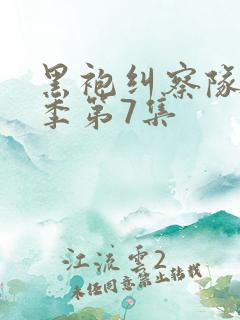 黑袍纠察队
季第7集
江流云2
未经同意禁止转载